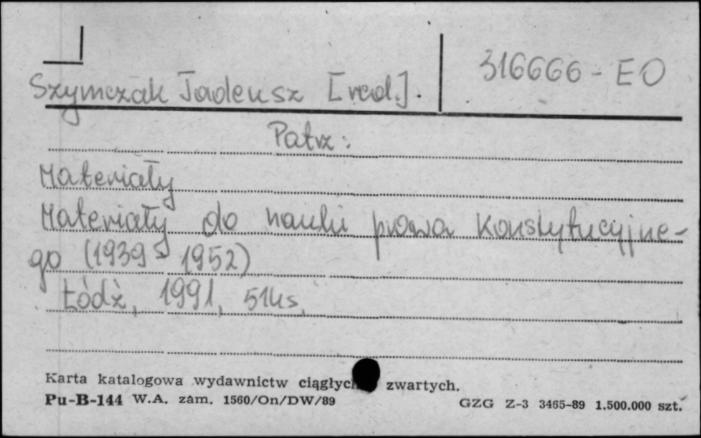 Szymczak Tadeusz [red.].
316666 - EO
Patrz:
Materiały
Materiały do nauki prawa konstytucyjne-
go (1939 - 1952)
Łódź, 1991, 514s.
Karta katalogowa wydawnictw ciągłych zwartych.
Pu-B-144 W.A. zam. 1560/On/DW/89
GZG Z-3 3465-89 1.500.000 szt.